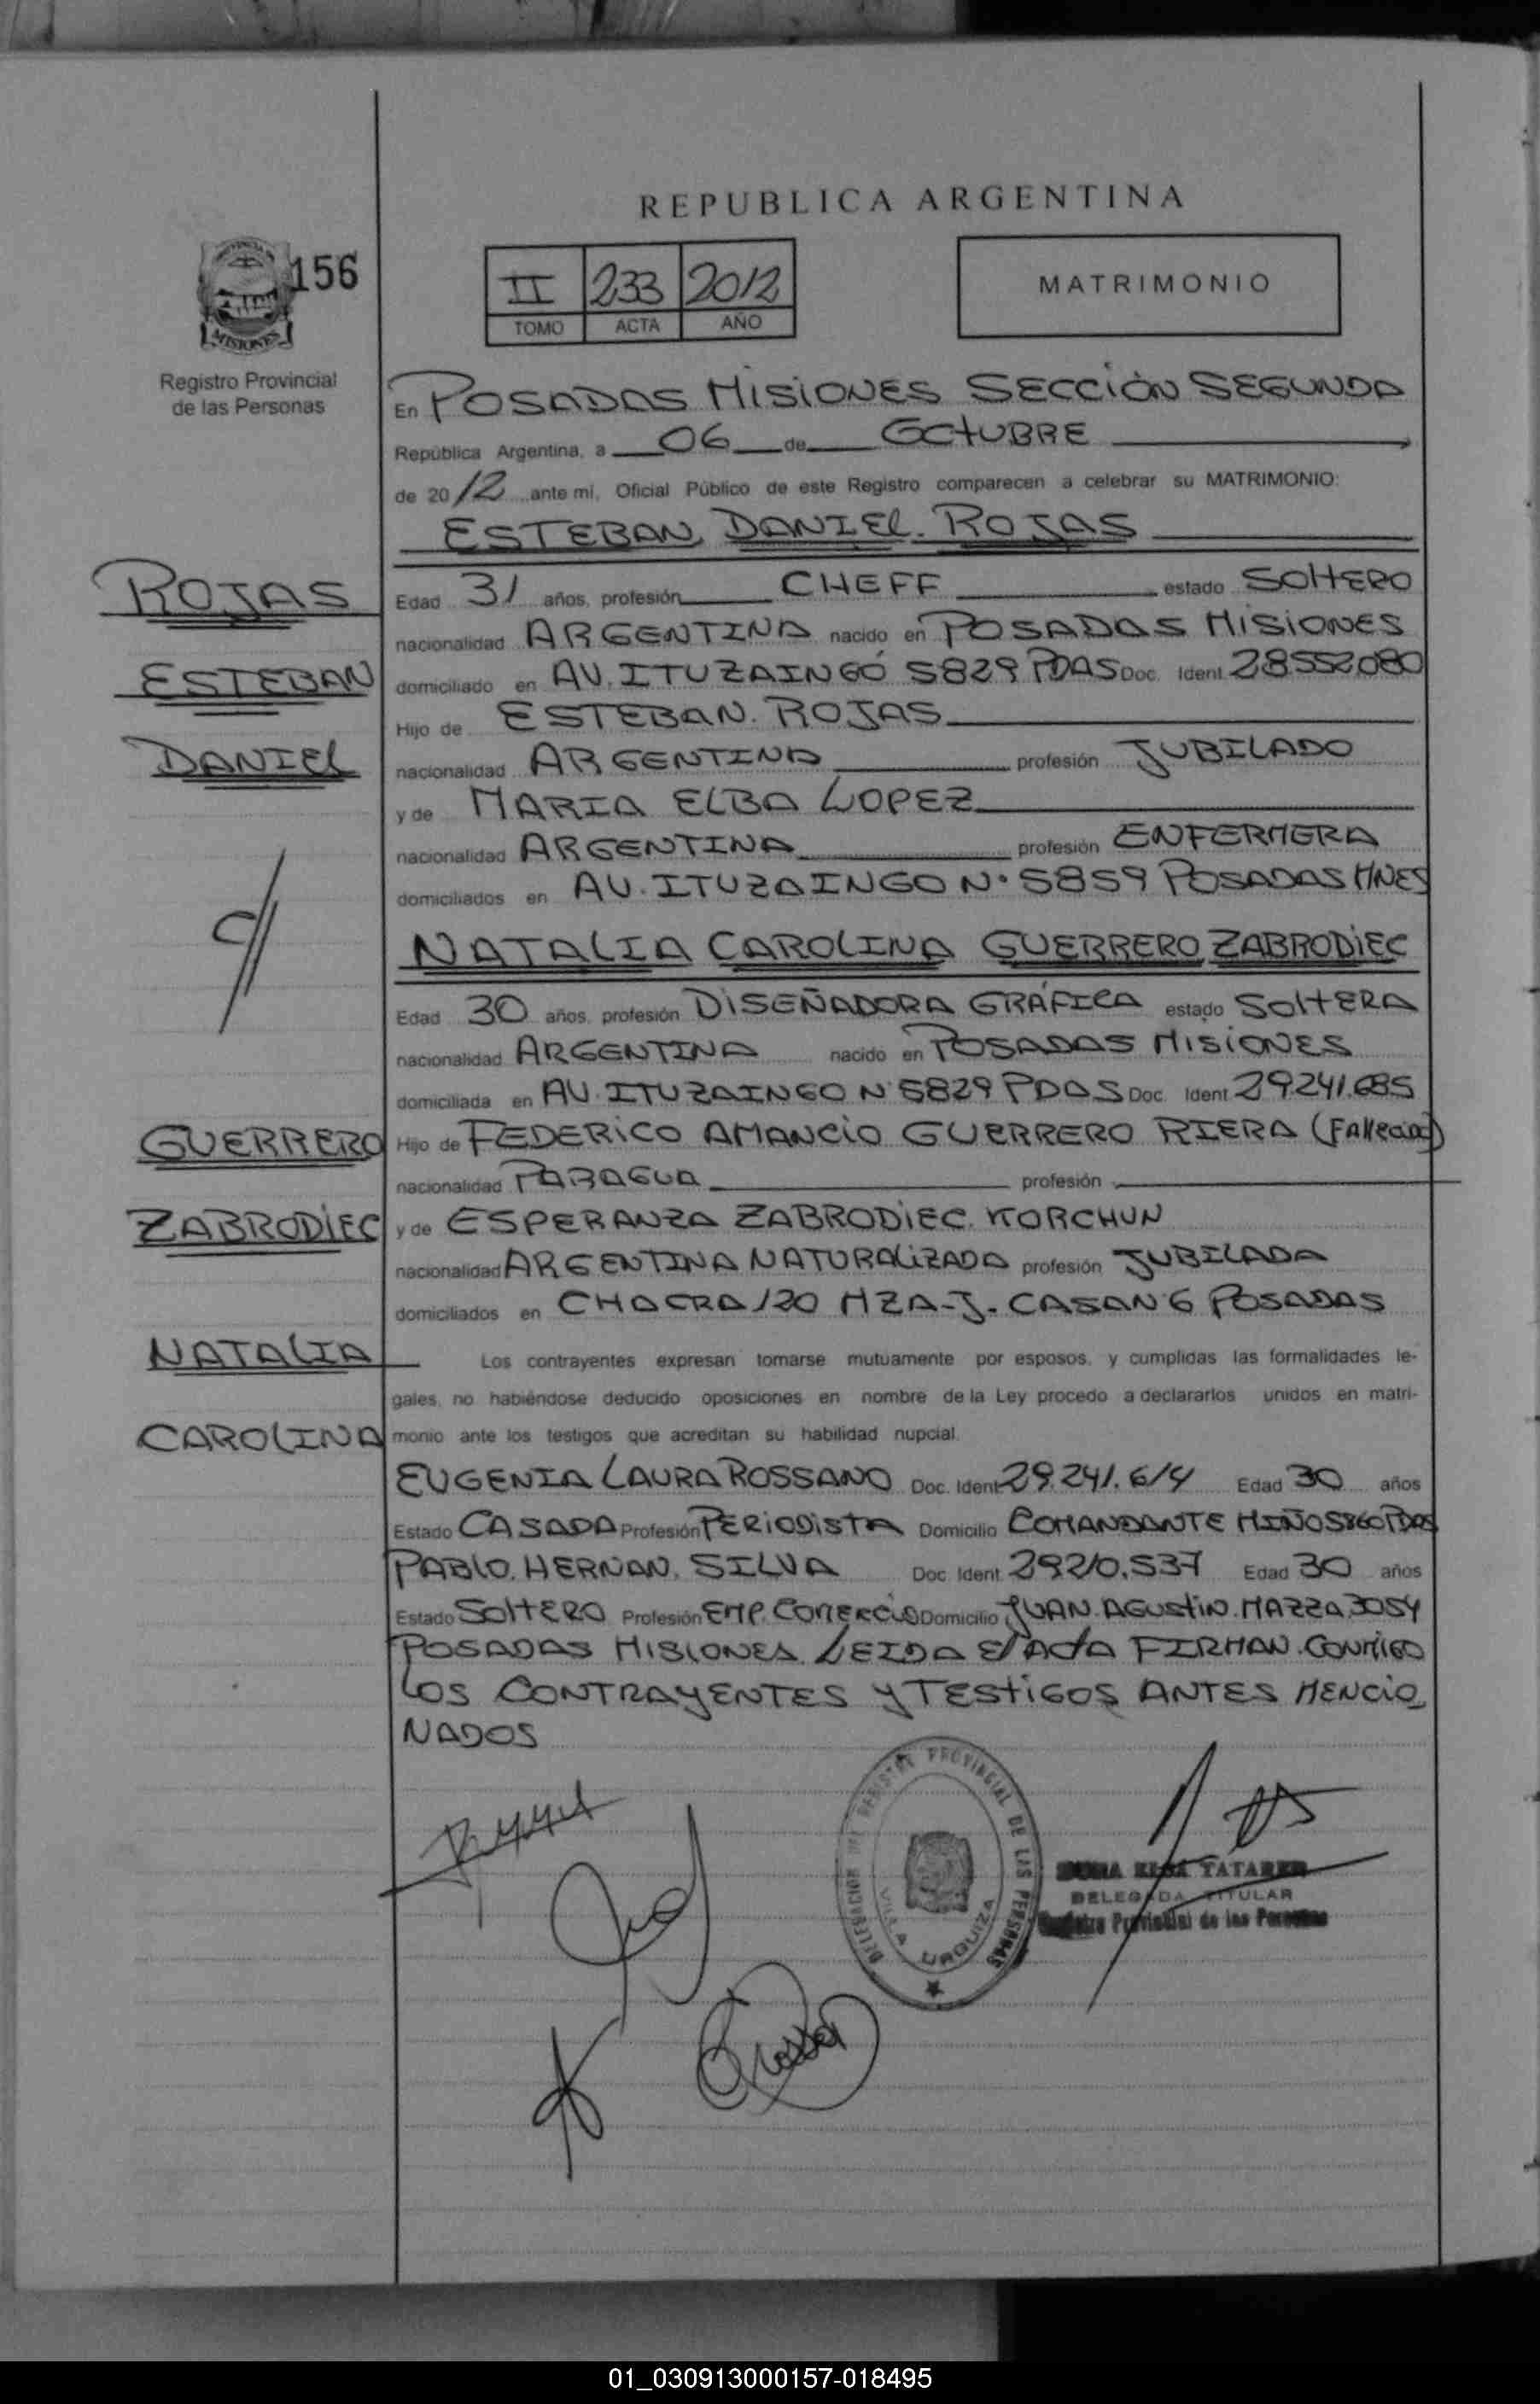 REPUBLICA ARGENTINA
156
MISIONES
Registro Provincial
de las Personas
II 233 2012
TOMO ACTA AÑO
MATRIMONIO
En POSADAS MISIONES SECCIÓN SEGUNDA
República Argentina, a 06 de OCTUBRE
de 2012 ante mi, Oficial Público de este Registro comparecen a celebrar su MATRIMONIO:
ESTEBAN DANIEL ROJAS
ROJAS
ESTEBAN
DANIEL
Edad 31 años, profesión CHEFF estado SOLTERO
nacionalidad ARGENTINA nacido en POSADAS MISIONES
domiciliado en AV. ITUZAINGÓ 5829 PDAS Doc. Ident. 28552080
Hijo de ESTEBAN ROJAS
nacionalidad ARGENTINA profesión JUBILADO
y de MARIA ELBA LOPEZ
nacionalidad ARGENTINA profesión ENFERMERA
domiciliados en AV. ITUZAINGO N° 5859 POSADAS MNES
NATALIA CAROLINA GUERRERO ZABRODIEC
Edad 30 años, profesión DISEÑADORA GRÁFICA estado SOLTERA
nacionalidad ARGENTINA nacido en POSADAS MISIONES
domiciliada en AV. ITUZAINGO N 5829 PDAS Doc. Ident. 29.241.685
GUERRERO
ZABRODIEC
NATALIA
CAROLINA
Hijo de FEDERICO AMANCIO GUERRERO RIERA (Fallecido)
nacionalidad PARAGUA profesión
y de ESPERANZA ZABRODIEC KORCHUN
nacionalidad ARGENTINA NATURALIZADA profesión JUBILADA
domiciliados en CHACRA 120 MZA-J- CASA N°6 POSADAS
Los contrayentes expresan tomarse mutuamente por esposos, y cumplidas las formalidades le-
gales, no habiéndose deducido oposiciones en nombre de la Ley procedo a declararlos unidos en matri-
monio ante los testigos que acreditan su habilidad nupcial.
EUGENIA LAURA ROSSANO Doc. Ident. 29.241.614 Edad 30 años
Estado CASADA Profesión PERIODISTA Domicilio COMANDANTE MIÑO 5860 PDAS
PABLO HERNAN SILVA Doc. Ident. 29210.537 Edad 30 años
Estado SOLTERO Profesión EMP. COMERCIO Domicilio JUAN AGUSTIN MAZZA 3054
POSADAS MISIONES LEIDA El ACTA FIRMAN CONMIGO
LOS CONTRAYENTES Y TESTIGOS ANTES MENCIO
NADOS
DELEGACION DEL REGISTRO PROVINCIAL DE LAS PERSONAS
VILLA URQUIZA
DELEGADA TITULAR
Registro Provincial de las Personas
01_030913000157-018495